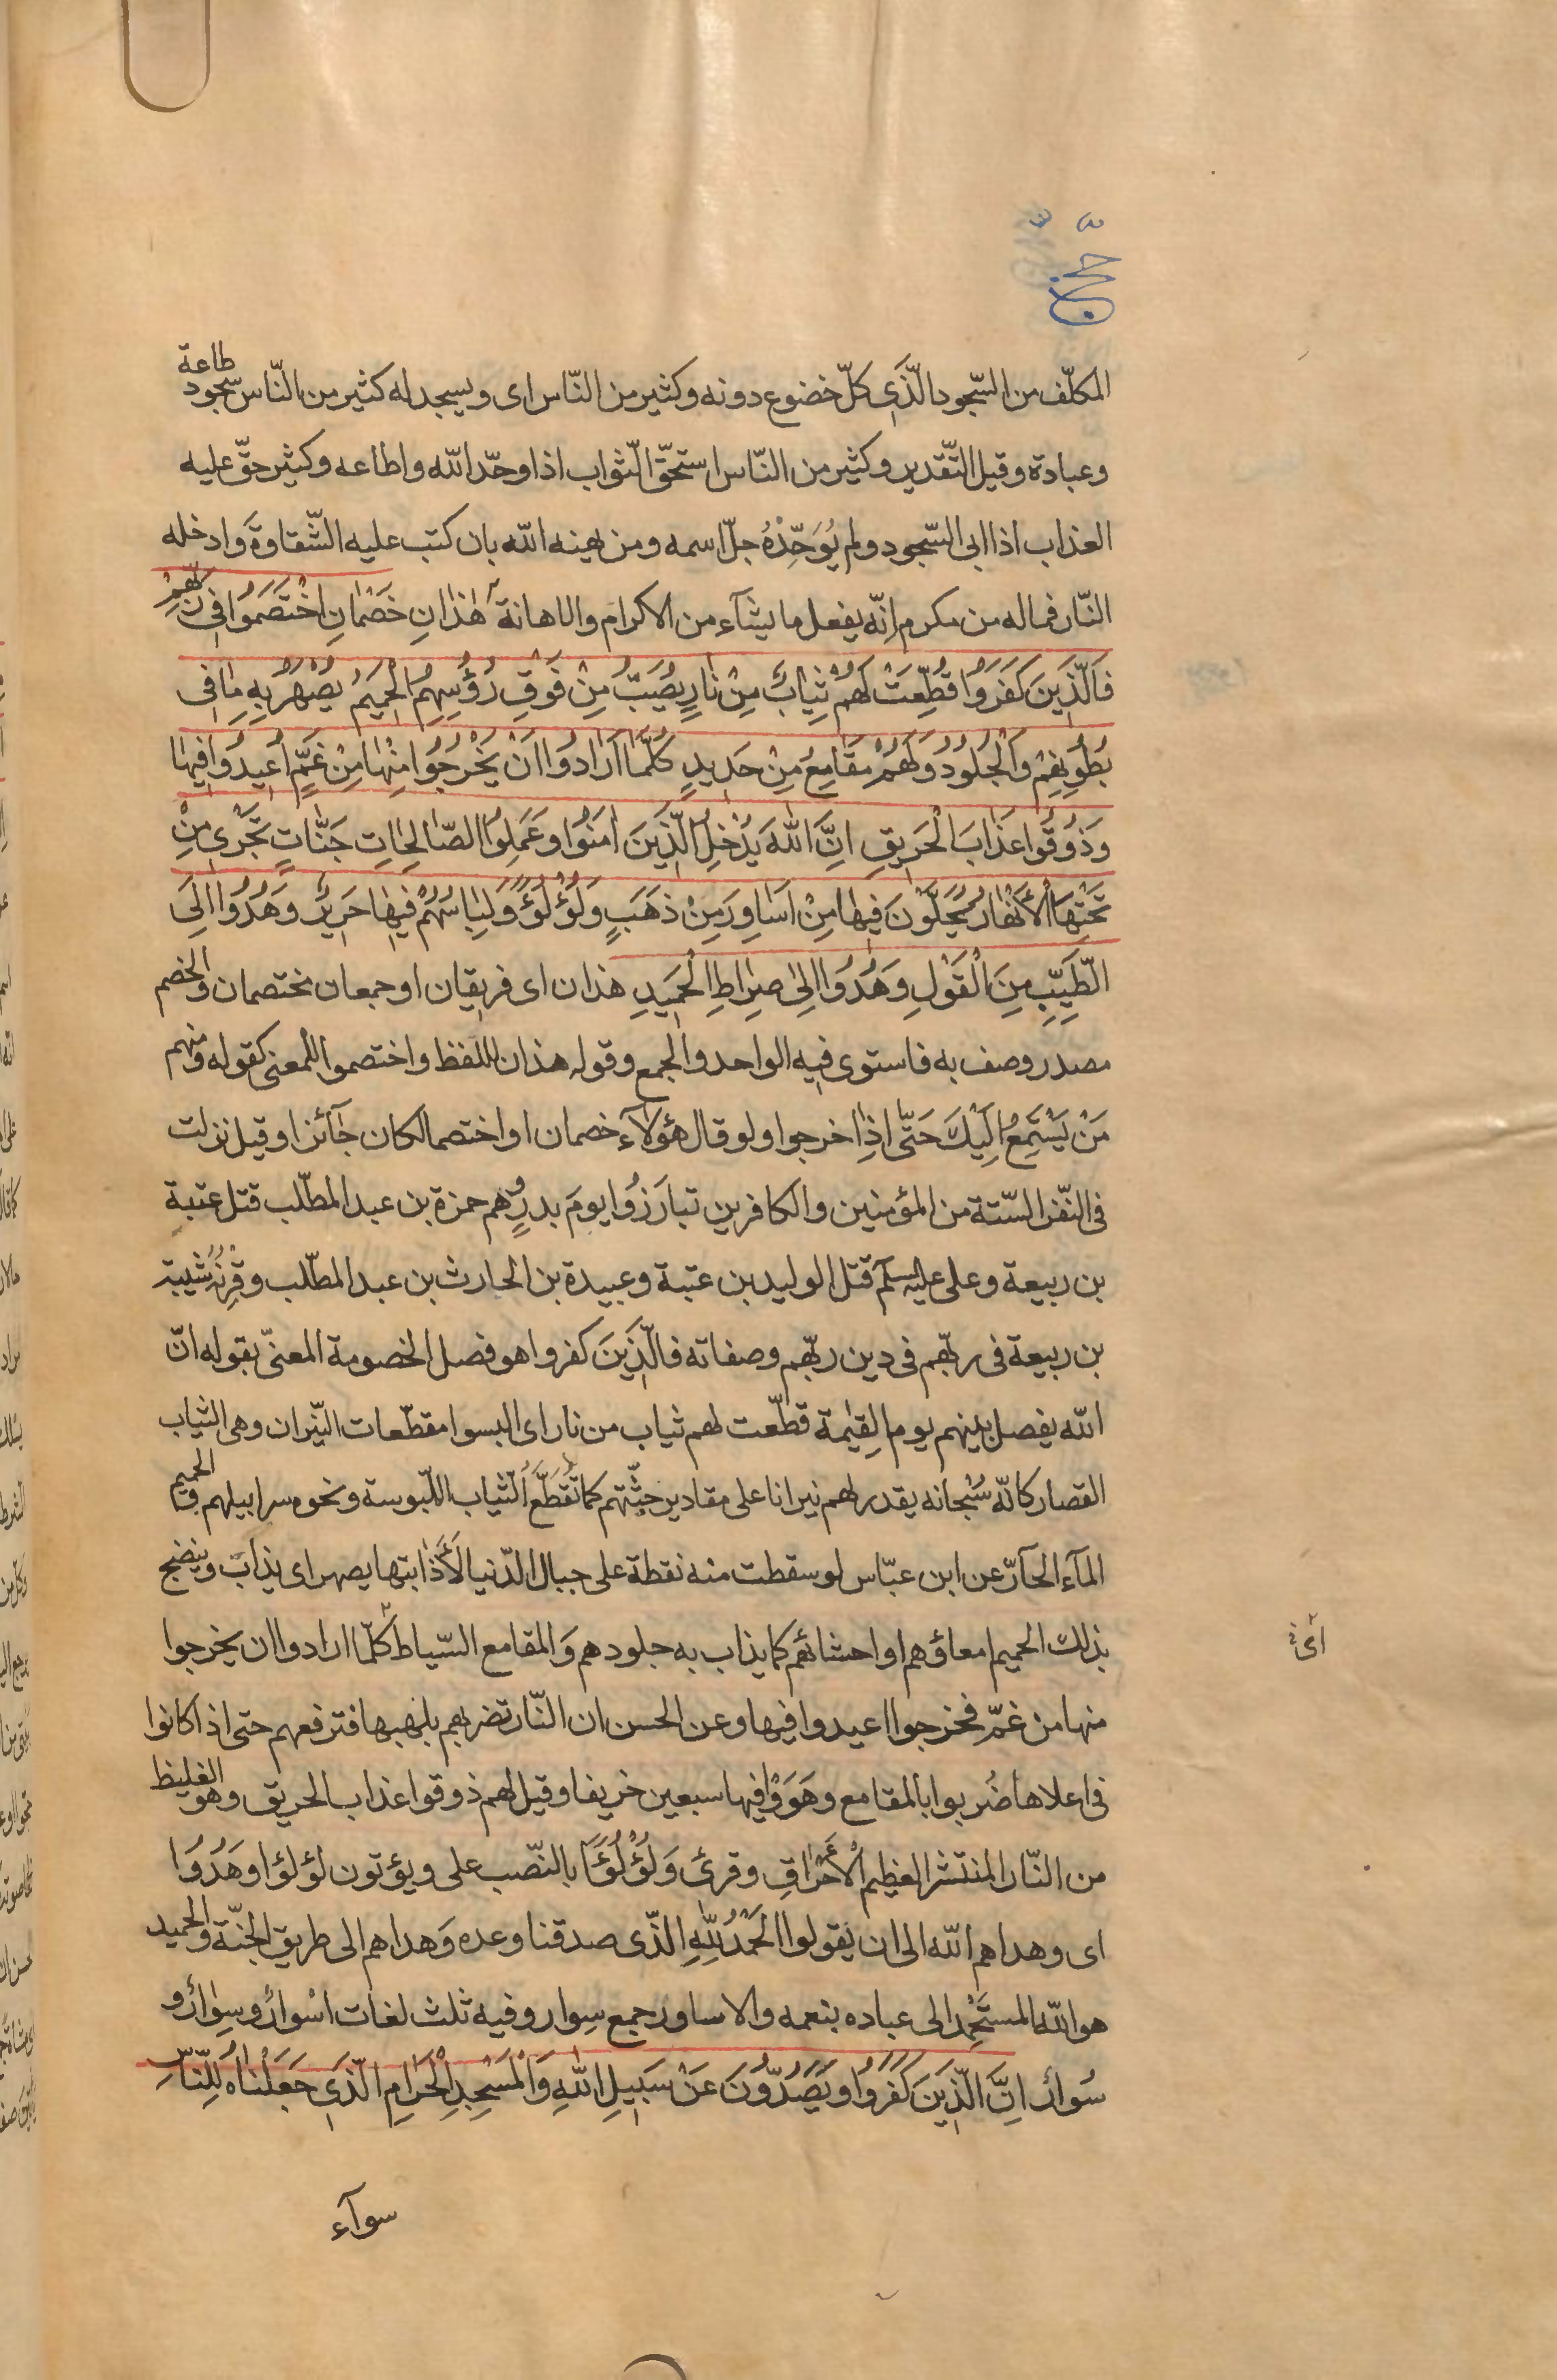 حج
المكلّف من السّجود الّذى كلّ خضوع دونه وكثير من النّاس اى ويسجد له كثير من النّاس سجود طاعة
وعبادة وقيل التّقدير وكثير من النّاس استحقّ الثواب اذا وحّد الله واطاعه وكثير حقّ عليه
العذاب اذا ابى السّجود ولم يُوَحِّدْهُ جلّ اسمه ومن يهنه الله بان كتب عليه الشّقاوة وادخله
النّار فماله من مكرم انّه يفعل ما يشآء من الاكرام والاهانة هٰذانِ خَصْمانِ اخْتَصَمُوا فى رَبِّهِمْ
فَالَّذينَ كَفَرُوا قُطِّعَتْ لَهُمْ ثِيابٌ مِنْ نارٍ يُصَبُّ مِنْ فَوْقِ رُؤُسِهِمُ الْحَميمُ يُصْهَرُ بِهِ ما فى
بُطُونِهِمْ وَالْجُلُودُ وَلَهُمْ مَقامِعُ مِنْ حَديدٍ كُلَّما اَرادُوا اَنْ يَخْرُجُوا مِنْها مِنْ غَمٍّ اُعيدُوا فيها
وَذُوقُوا عَذابَ الْحَريقِ اِنَّ اللهَ يُدْخِلُ الَّذينَ امَنُوا وَعَمِلُوا الصّالِحاتِ جَنّاتٍ تَجْرى مِنْ
تَحْتِهَا الْأَنْهارُ يُحَلَّوْنَ فيها مِنْ اَساوِرَ مِنْ ذَهَبٍ وَلُؤْلُؤًا وَلِباسُهُمْ فيها حَريرٌ وَهُدُوا اِلَى
الطَّيِّبِ مِنَ الْقَوْلِ وَهُدُوا اِلىٰ صِراطِ الْحَميدِ هذان اى فريقان او جمعان يختصمان والخصم
مصدر وصف به فاستوى فيه الواحد والجمع وقوله هذان للّفظ واختصموا للمعنى كقوله ومنهم
مَنْ يَسْتَمِعُ اِلَيْكَ حَتّى اِذا خرجوا ولو قال هؤلآء خصمان او اختصما لكان جآئزا وقيل نزلت
فى النّفر السّتة من المؤمنين والكافرين تبارَزُوا يومَ بدرٍ وهم حمزة بن عبد المطّلب قتل عتبة
بن ربيعة وعلى عليه السلم قتل الوليد بن عتبة وعبيدة بن الحارث بن عبد المطّلب وقِرْنُهُ شيبة
بن ربيعة فى ربّهم فى دين ربّهم وصفاته فالّذينَ كفروا هو فصل الخصومة المعنىّ بقوله انّ
الله يفصل بينهم يوم القيٰمة قطّعت لهم ثياب من نار اى البسوا مقطّعات النّيران وهى الثياب
القصار كانّه سُبْحانه يقدر لهم نيرانا على مقادير جثّتهم كما تُقَطَّعُ الثياب الملبوسة ونحوه سرابيلهم والحميم
المآء الحآرّ عن ابن عبّاس لو سقطت منه نقطة على جبال الدّنيا لأَذابتها يصهر اى يذاب وينضج
بذلك الحميم امعاؤهم او احشائهم كما يذاب به جلودهم والمقامع السّياط كلّما ارادوا ان يخرجوا
اى
منها من غمّ فخرجوا اعيدوا فيها وعن الحسن ان النّار تضربهم بلهبها فترفعهم حتى اذا كانوا
فى اعلاها ضُربوا بالمقامع وهَوَوْا فيها سبعين خريفا وقيل لهم ذوقوا عذاب الحريق وهو الغليظ
من النّار المنتشر العظيم الْأَحْراقِ وقرئ وَلُؤْلُؤًا بالنّصب على ويؤتون لؤلؤا وهُدُوا
اى وهداهم الله الى ان يقولوا الْحَمْدُ لِلّهِ الّذى صدقنا وعده وَهداهم الى طريق الجنّة والحميد
هو الله المستَحْمِد الى عباده بنعمه والاساور جمع سِوار وفيه ثلث لغات اسْوارٌ وسِوارٌ و
سُوارٌ اِنَّ الَّذينَ كَفَرُوا وَيَصُدُّونَ عَنْ سَبيلِ اللهِ وَالْمَسْجِدِ الْحَرامِ الَّذى جَعَلْناهُ لِلنّاسِ
سوآء